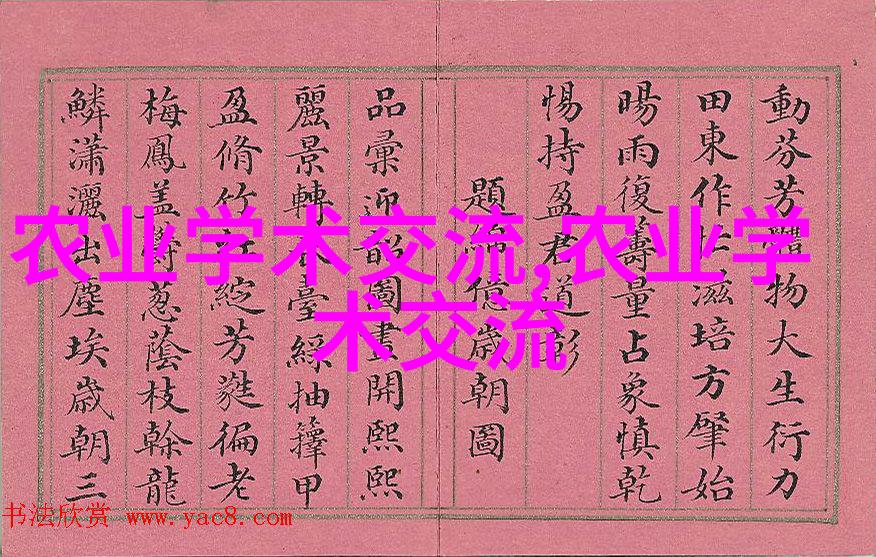 動芬芳體物大生衍力
田東作仁滋培方肇始
暘雨復籌量占象慎乾
惕持盈君道彰
題
億歲朝圖
品彙迎韶圖畫開熙熙
麗景轉
臺綵抽籜甲
盈脩竹
綻芳蕤徧老
梅鳳蓋
葱蔭枝榦龍
鱗瀟灑出塵埃歲朝三
农业学术交流,农业学
术交流
书法欣赏 www.yac8.com